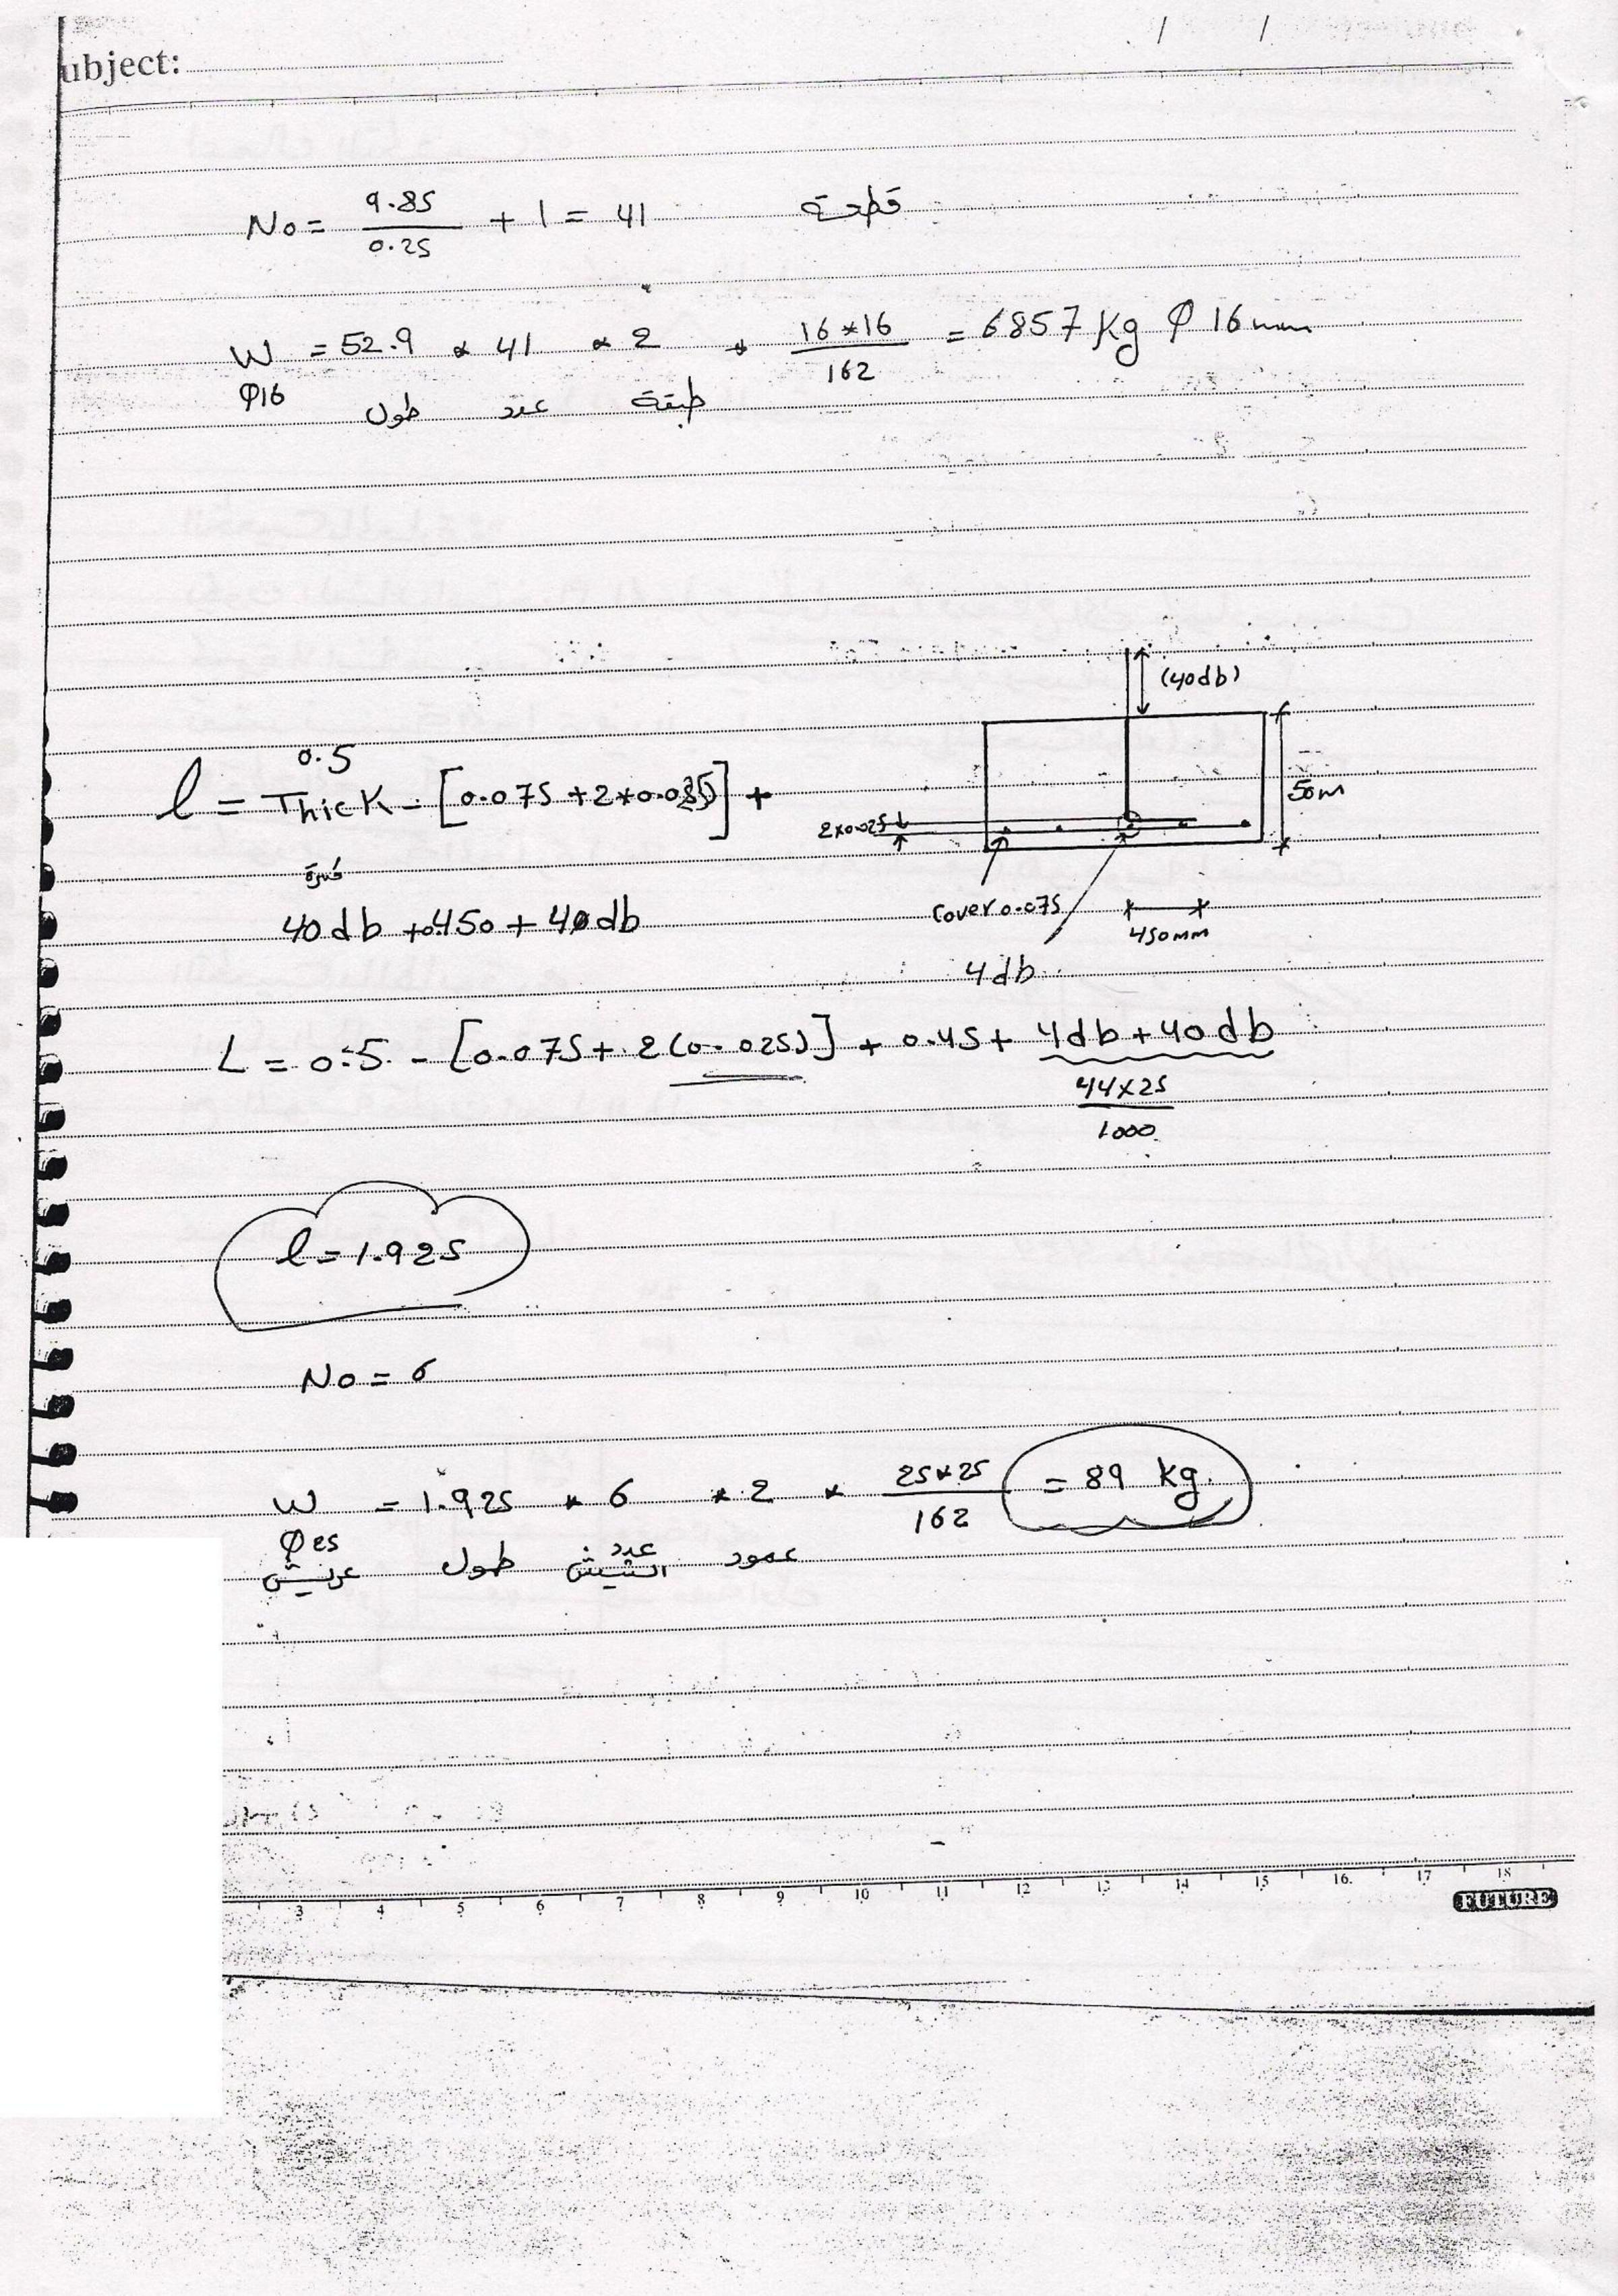 ubject:
/ /
No = 9.85 / 0.25 + 1 = 41 قطعة
W = 52.9 * 41 * 2 * 16*16 / 162 = 6857 Kg Φ 16 mm
Φ16 طول عدد طبقة
(40db)
0.5
l = Thick - [0.075 + 2*0.025] +
50m
2x0.025
40 db + 0.450 + 40 db
Cover 0.075
450mm
4db
L = 0.5 - [0.075 + 2(0.025)] + 0.45 + 4db + 40db
44x25 / 1000
l = 1.925
No = 6
W = 1.925 * 6 * 2 * 25*25 / 162 = 89 kg.
Φ25 طول عدد الشيش عمود
3 4 5 6 7 8 9 10 11 12 13 14 15 16 17 18
FUTURE